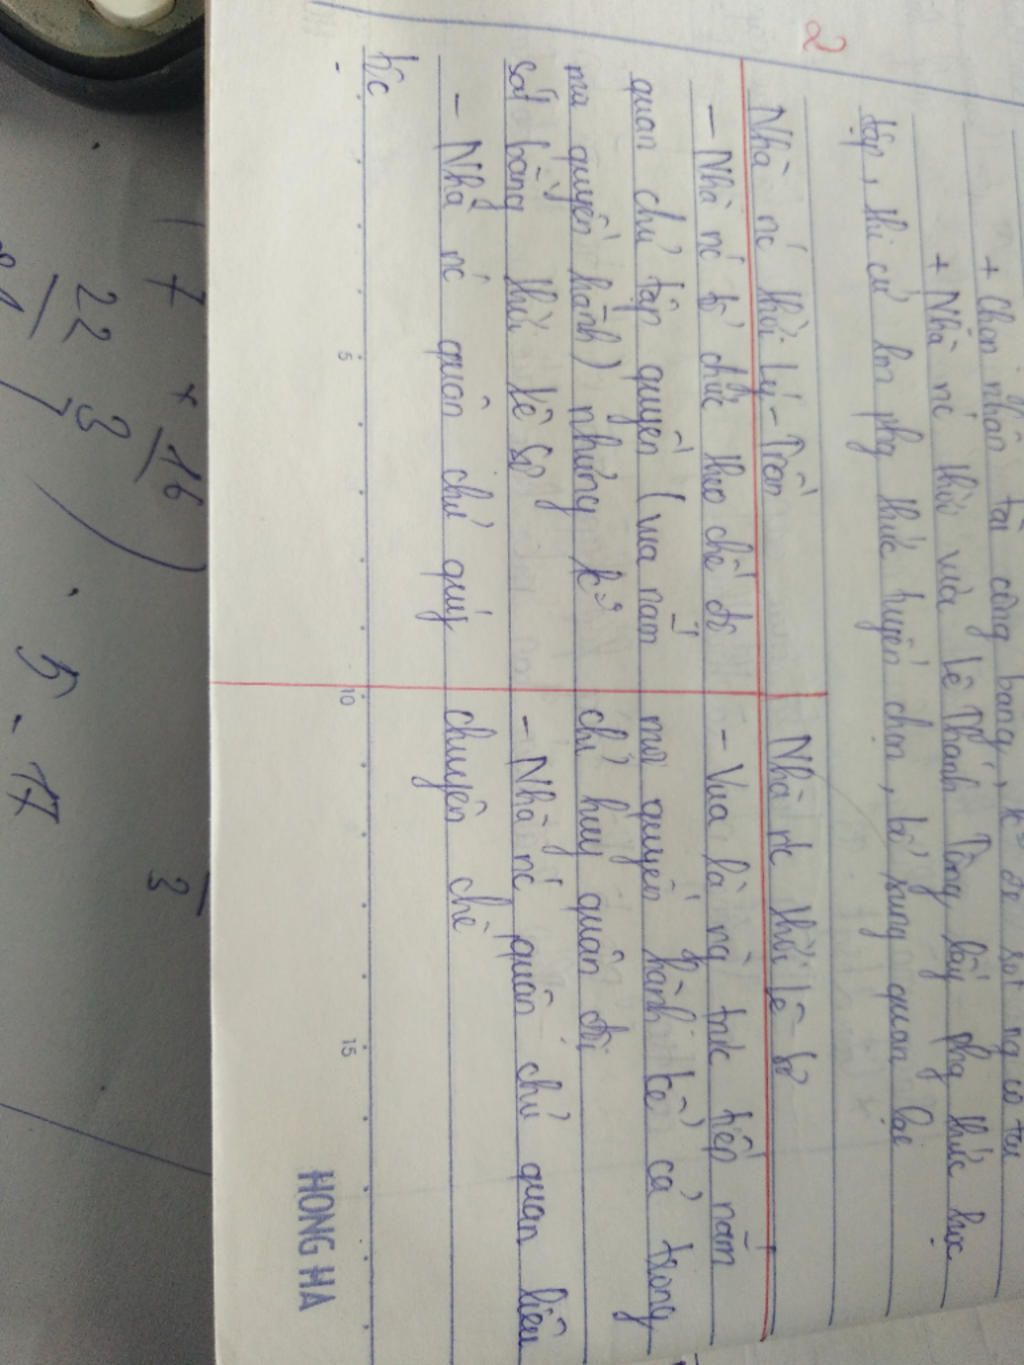 + Chọn nhân tài công bằng, k⁰ để sót ng có tài
+ Nhà nc thời vua Lê Thánh Tông lấy phg thức học
tập, thi cử làm phg thức tuyển chọn, bổ sung quan lại
2
Nhà nc thời Lý - Trần
- Nhà nc tổ chức theo chế độ
quan chủ tập quyền (vua nắm
mọi quyền hành) nhưng k⁰
sát bằng thời Lê Sơ
- Nhà nc quân chủ quý
tộc
Nhà nc thời Lê sơ
- Vua là ng trực tiếp nắm
mọi quyền hành kể cả trong
chỉ huy quân đội
- Nhà nc quân chủ quan liêu
chuyên chế
5
10
15
HONG HA
7
16
22
3
5 - 17
3